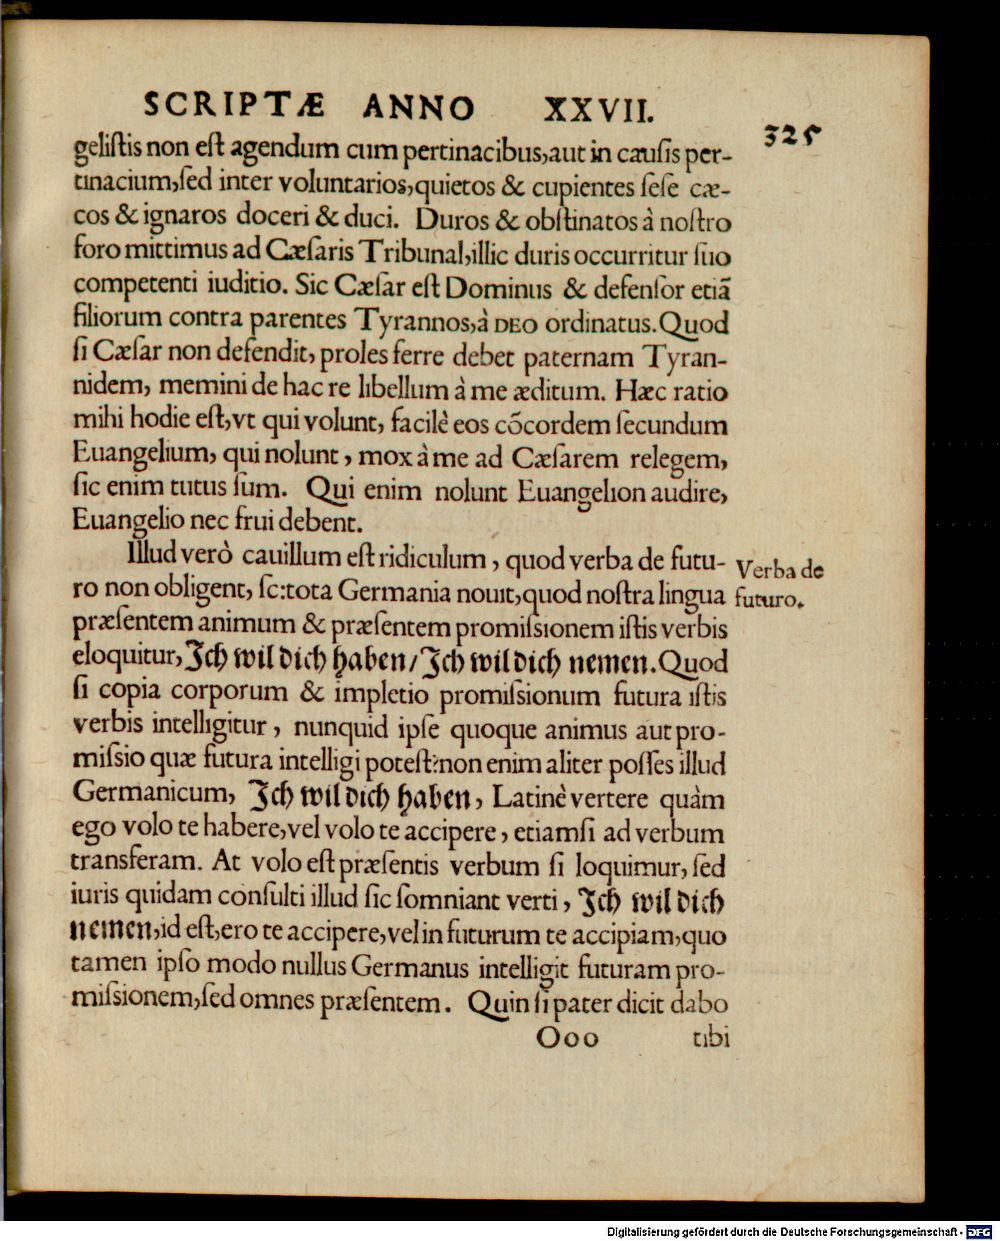 SCRIPTÆ ANNO XXVII.
325
geliſtis non eſt agendum cum pertinacibus,aut in cauſis per-
tinacium,ſed inter voluntarios,quietos & cupientes ſeſe cæ-
cos & ignaros doceri & duci. Duros & obſtinatos à noſtro
foro mittimus ad Cæſaris Tribunal,illic duris occurritur ſuo
competenti iuditio. Sic Cæſar eſt Dominus & defenſor etiã
filiorum contra parentes Tyrannos,à DEO ordinatus.Quod
ſi Cæſar non defendit, proles ferre debet paternam Tyran-
nidem, memini de hac re libellum à me æditum. Hæc ratio
mihi hodie eſt,vt qui volunt, facilè eos cõcordem ſecundum
Euangelium, qui nolunt, mox à me ad Cæſarem relegem,
ſic enim tutus ſum. Qui enim nolunt Euangelion audire,
Euangelio nec frui debent.
Illud verò cauillum eſt ridiculum, quod verba de futu-
ro non obligent, ſc:tota Germania nouit,quod noſtra lingua
præſentem animum & præſentem promiſsionem iſtis verbis
eloquitur, Ich wil dich haben/ Ich wil dich nemen. Quod
ſi copia corporum & impletio promiſsionum futura iſtis
verbis intelligitur, nunquid ipſe quoque animus aut pro-
miſsio quæ futura intelligi poteſt?non enim aliter poſſes illud
Germanicum, Ich wil dich haben, Latinè vertere quàm
ego volo te habere,vel volo te accipere, etiamſi ad verbum
transferam. At volo eſt præſentis verbum ſi loquimur, ſed
iuris quidam conſulti illud ſic ſomniant verti, Ich wil dich
nemen,id eſt,ero te accipere,vel in futurum te accipiam,quo
tamen ipſo modo nullus Germanus intelligit futuram pro-
miſsionem,ſed omnes præſentem. Quin ſi pater dicit dabo
Ooo tibi
Verba de
futuro.
Digitalisierung gefördert durch die Deutsche Forschungsgemeinschaft - DFG